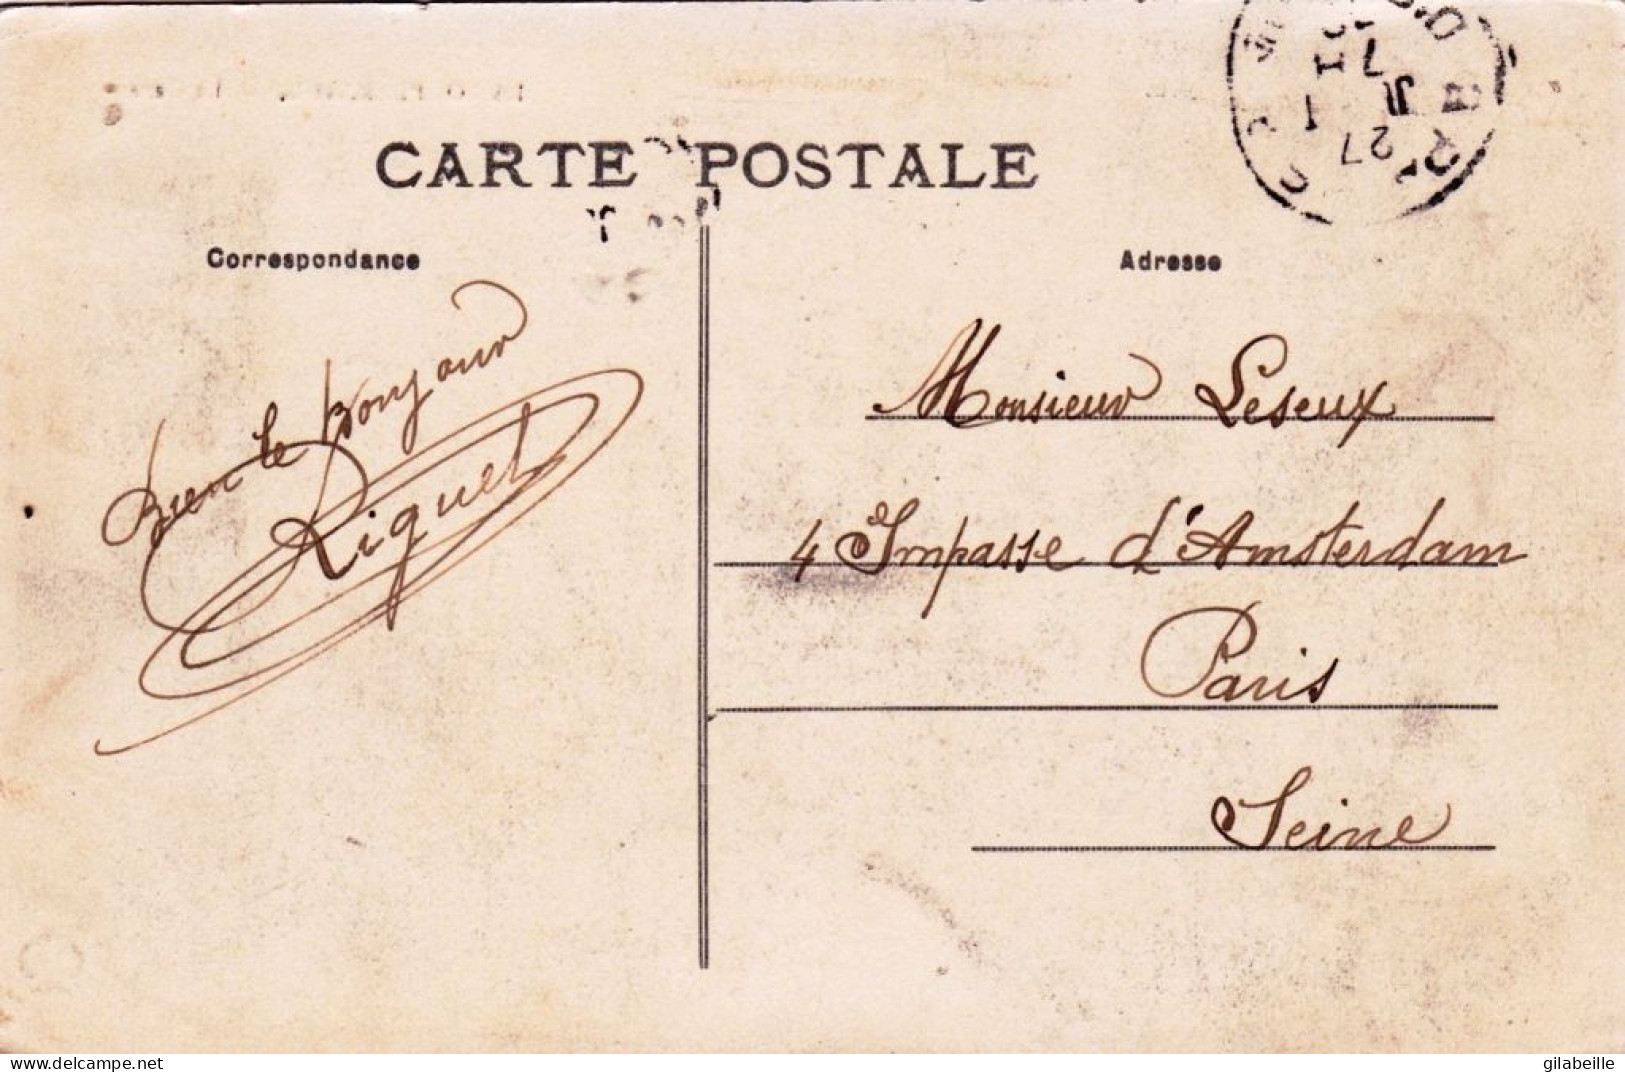 CARTE POSTALE
Correspondance
Adresse
Bien le Bonjour
Riquet
Monsieur Leseux
4 Impasse d'Amsterdam
Paris
Seine
www.delcampe.net
gilabeille